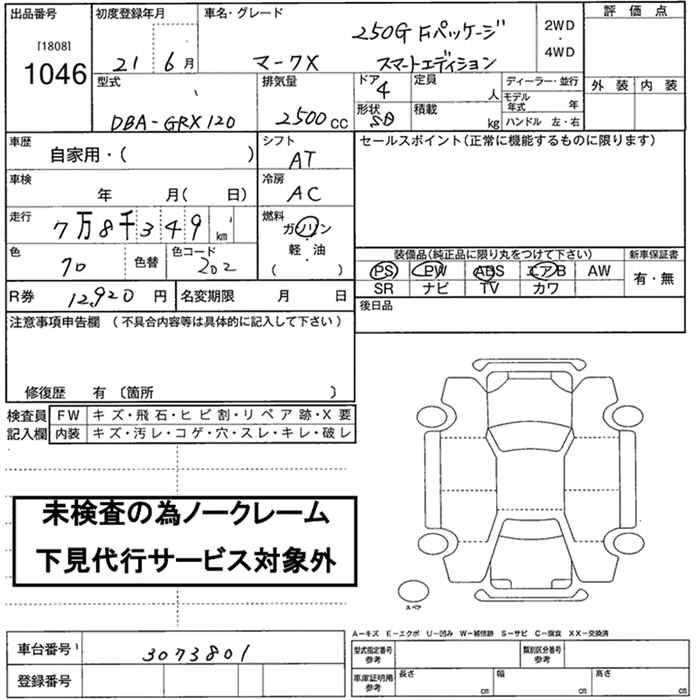 出品番号 初度登録年月 車名・グレード 2WD・4WD 評価点
[1808]
1046
21 6月 マークX 250G Fパッケージ スマートエディション
外装 内装
型式 排気量 ドア 定員 ディーラー・並行
DBA-GRX120 2500cc 4 人 モデル年式 年
形状 積載 ハンドル 左・右
SD kg
車歴 自家用・( ) シフト AT セールスポイント(正常に機能するものに限ります)
車検 年 月( 日) 冷房 AC
走行 7万8千349km 燃料 ガソリン・軽油・( )
色 色替 色コード 202
装備品(純正品に限り丸をつけて下さい) 新車保証書
PS PW ABS エアB AW 有・無
SR ナビ TV カワ
R券 12,920円 名変期限 月 日 後日品
注意事項申告欄 (不具合内容等は具体的に記入して下さい)
修復歴 有 〔箇所 〕
検査員記入欄 FW キズ・飛石・ヒビ割・リペア跡・X要
内装 キズ・汚レ・コゲ・穴・スレ・キレ・破レ
未検査の為ノークレーム
下見代行サービス対象外
スペア
A-キズ E-エクボ U-凹み W-補修跡 S-サビ C-腐食 XX-交換済
車台番号 3073801 型式指定番号参考 類別区分番号参考
登録番号 車庫証明用参考 長さ cm 幅 cm 高さ cm